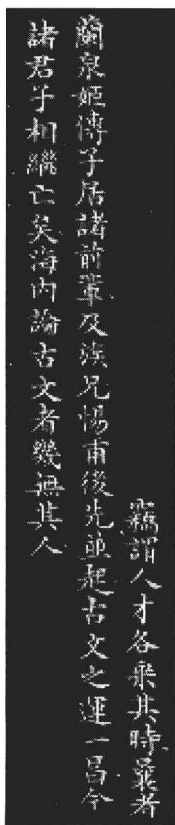 竊謂人才各乘其時曩者
蘭泉姬傳子居諸前輩及族兄惕甫後先並起古文之運一昌今
諸君子相繼亡矣海內論古文者幾無其人